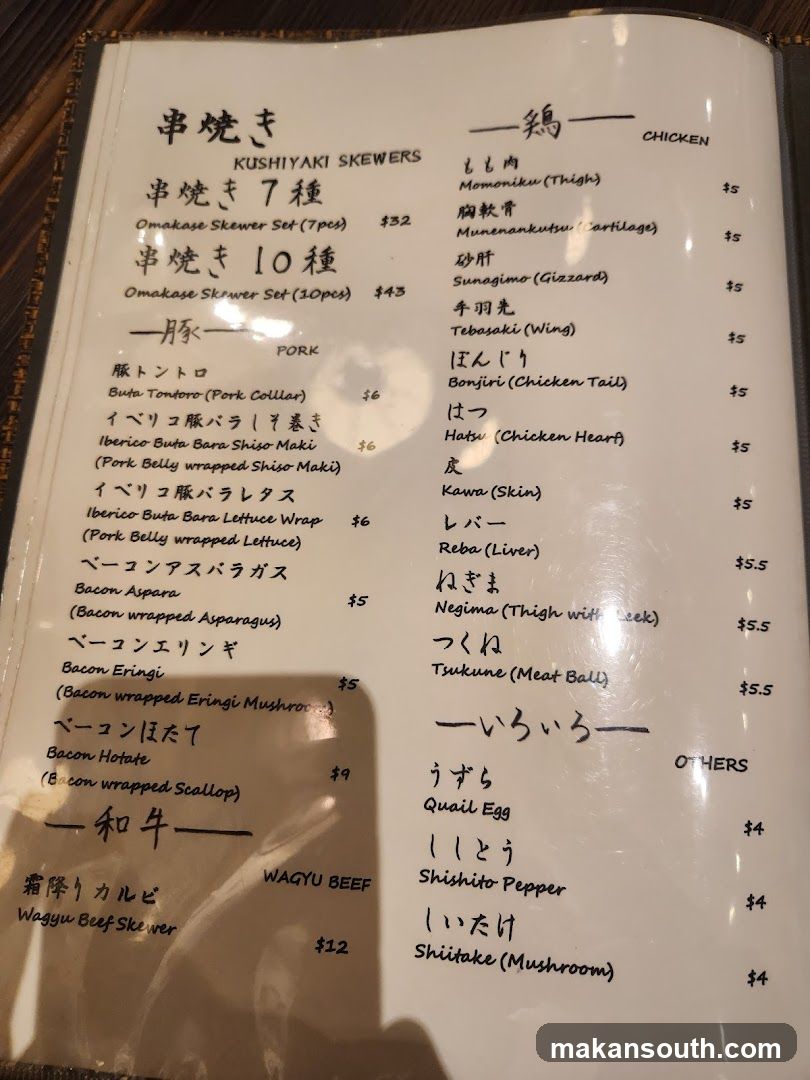 串焼き
KUSHIYAKI SKEWERS
串焼き 7種
Omakase Skewer Set (7pcs) $32
串焼き 10種
Omakase Skewer Set (10pcs) $43
豚
PORK
豚トントロ
Buta Tontoro (Pork Colllar) $6
イベリコ豚バラしそ巻き
Iberico Buta Bara Shiso Maki $6
(Pork Belly wrapped Shiso Maki)
イベリコ豚バラレタス
Iberico Buta Bara Lettuce Wrap $6
(Pork Belly wrapped Lettuce)
ベーコンアスパラガス
Bacon Aspara $5
(Bacon wrapped Asparagus)
ベーコンエリンギ
Bacon Eringi $5
(Bacon wrapped Eringi Mushroom)
ベーコンほたて
Bacon Hotate $9
(Bacon wrapped Scallop)
和牛
WAGYU BEEF
霜降りカルビ
Wagyu Beef Skewer $12
鶏
CHICKEN
もも肉
Momoniku (Thigh) $5
胸軟骨
Munenankutsu (Cartilage) $5
砂肝
Sunagimo (Gizzard) $5
手羽先
Tebasaki (Wing) $5
ぼんじり
Bonjiri (Chicken Tail) $5
はつ
Hatsu (Chicken Heart) $5
皮
Kawa (Skin) $5
レバー
Reba (Liver) $5.5
ねぎま
Negima (Thigh with Leek) $5.5
つくね
Tsukune (Meat Ball) $5.5
いろいろ
OTHERS
うずら
Quail Egg $4
ししとう
Shishito Pepper $4
しいたけ
Shiitake (Mushroom) $4
makansouth.com